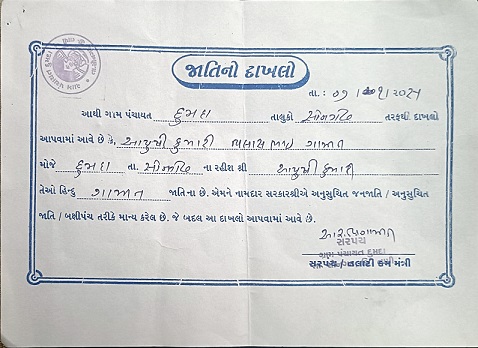 જાતિનો દાખલો
તા.: ૦૧ ૨૦૨૫
આથી ગામ પંચાયત દુમદા તાલુકો સોનગઢ તરફથી દાખલો
આપવામાં આવે છે કે, આયુષી કુમારી ગામીત
મોજે દુમદા તા. સોનગઢ ના રહીશ શ્રી આયુષી કુમારી
તેઓ હિન્દુ ગામીત જાતિના છે. એમને નામદાર સરકારશ્રીએ અનુસુચિત જનજાતિ / અનુસુચિત
જાતિ / બક્ષીપંચ તરીકે માન્ય કરેલ છે. જે બદલ આ દાખલો આપવામાં આવે છે.
સરપંચ
ગ્રામ પંચાયત દુમદા
સરપંચ / તલાટી કમ મંત્રી